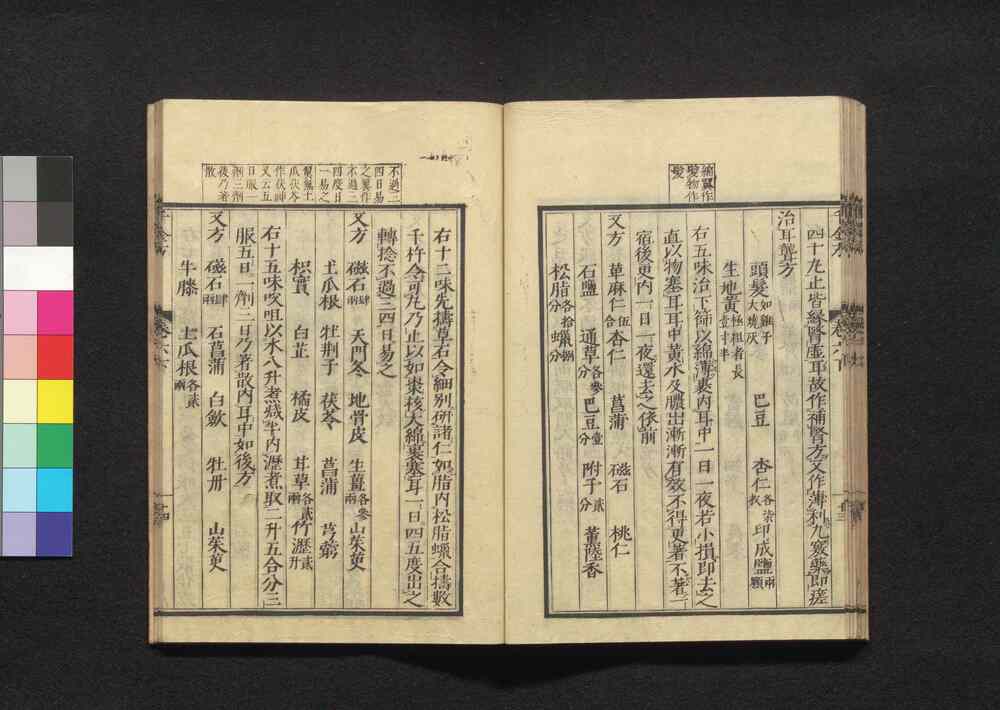 綿翼作
髮物作
髮
四十九止皆緣腎虛耳故作補腎方又作薄利九竅藥即瘥
治耳聾方
頭髮如雞子大燒灰 巴豆 杏仁各柒枚 印成鹽兩顆
生地黃極粗者長壹寸半
右五味治下篩以綿薄裹內耳中一日一夜若小損即去之
直以物塞耳耳中黃水及膿出漸漸有效不得更著不著一
宿後更內一日一夜還去之依前
又方 草麻仁伍合 杏仁 菖蒲 磁石 桃仁
石鹽 通草各參分 巴豆壹分 附子貳分 薰陸香
松脂各拾分 蠟捌分
不過三
四日易
之翼作
不過三
四度日
一易之
鬢鬼土
瓜茯苓
作茯神
又云五
日服一
劑三劑
後乃著
散
右十二味先擣草石令細別研諸仁如脂內松脂蠟合擣數
千杵令可丸乃止以如棗核大綿裹塞耳一日四五度出之
轉捻不過三四日易之
又方 磁石肆兩 天門冬 地骨皮 生薑各參兩 山茱萸
土瓜根 牡荊子 茯苓 菖蒲 芎藭
枳實 白芷 橘皮 甘草各貳兩 竹瀝貳升
右十五味㕮咀以水八升煮減半內瀝煮取二升五合分三
服五日一劑三日乃著散內耳中如後方
又方 磁石肆兩 石菖蒲 白歛 牡丹 山茱萸
牛膝 土瓜根各貳兩